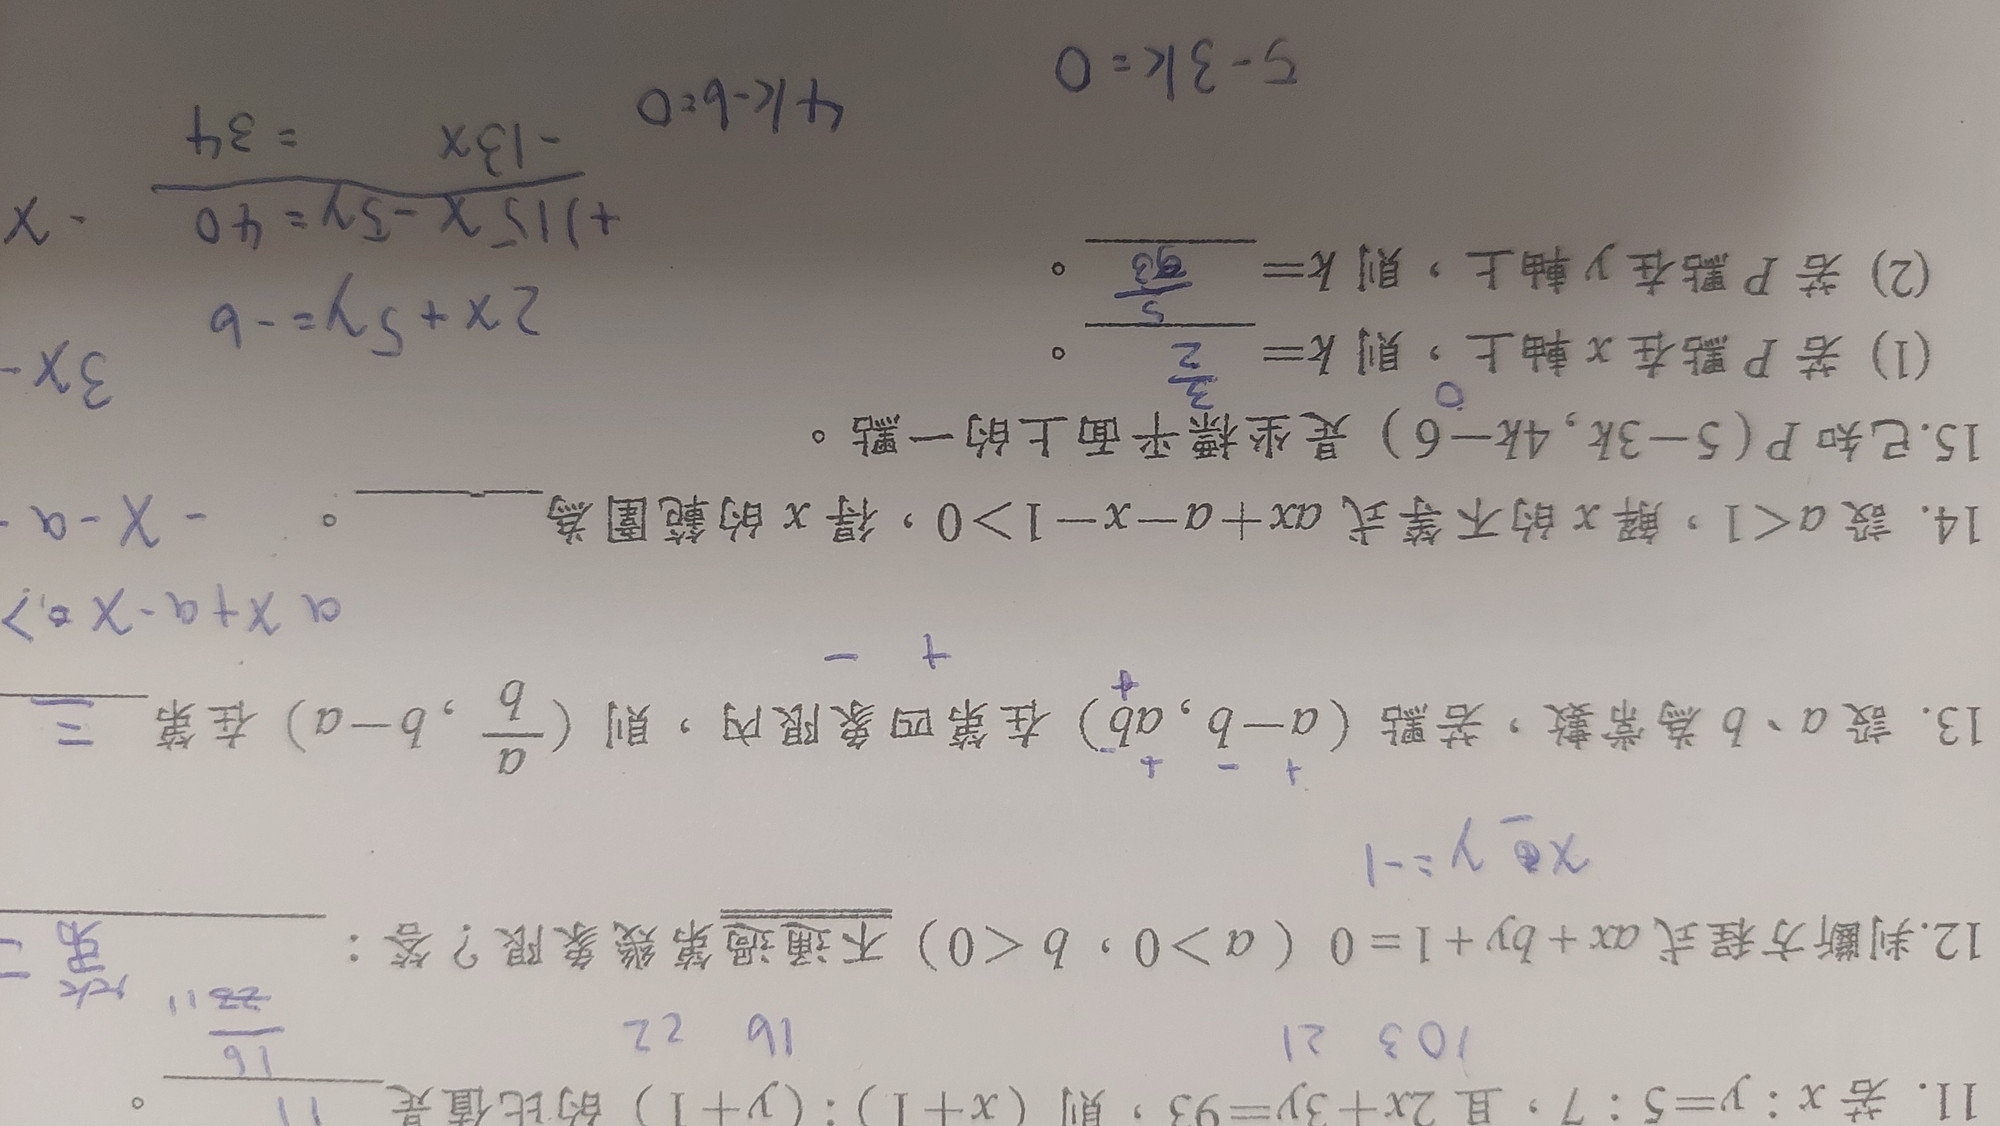 11. 若 x：y=5：7，且 2x+3y=93，則（x+1）：（y+1）的比值是 11 。
103 21 16 22 16
2211
12.判斷方程式 ax+by+1=0（a>0，b<0）不通過第幾象限？答：
第二
x y=-1
+ - +
13. 設 a、b 為常數，若點（a-b, ab）在第四象限內，則（a/b, b-a）在第 三
+ + -
ax+a-x >
14. 設 a<1，解 x 的不等式 ax+a-x-1>0，得 x 的範圍為 。
-x-a-
15.已知 P（5-3k, 4k-6）是坐標平面上的一點。
0
(1) 若 P 點在 x 軸上，則 k= 3/2 。
3x-
(2) 若 P 點在 y 軸上，則 k= 5/3 。
2x+5y=-6
+)15x-5y=40
-x
-13x =34
4k-6=0
5-3k=0